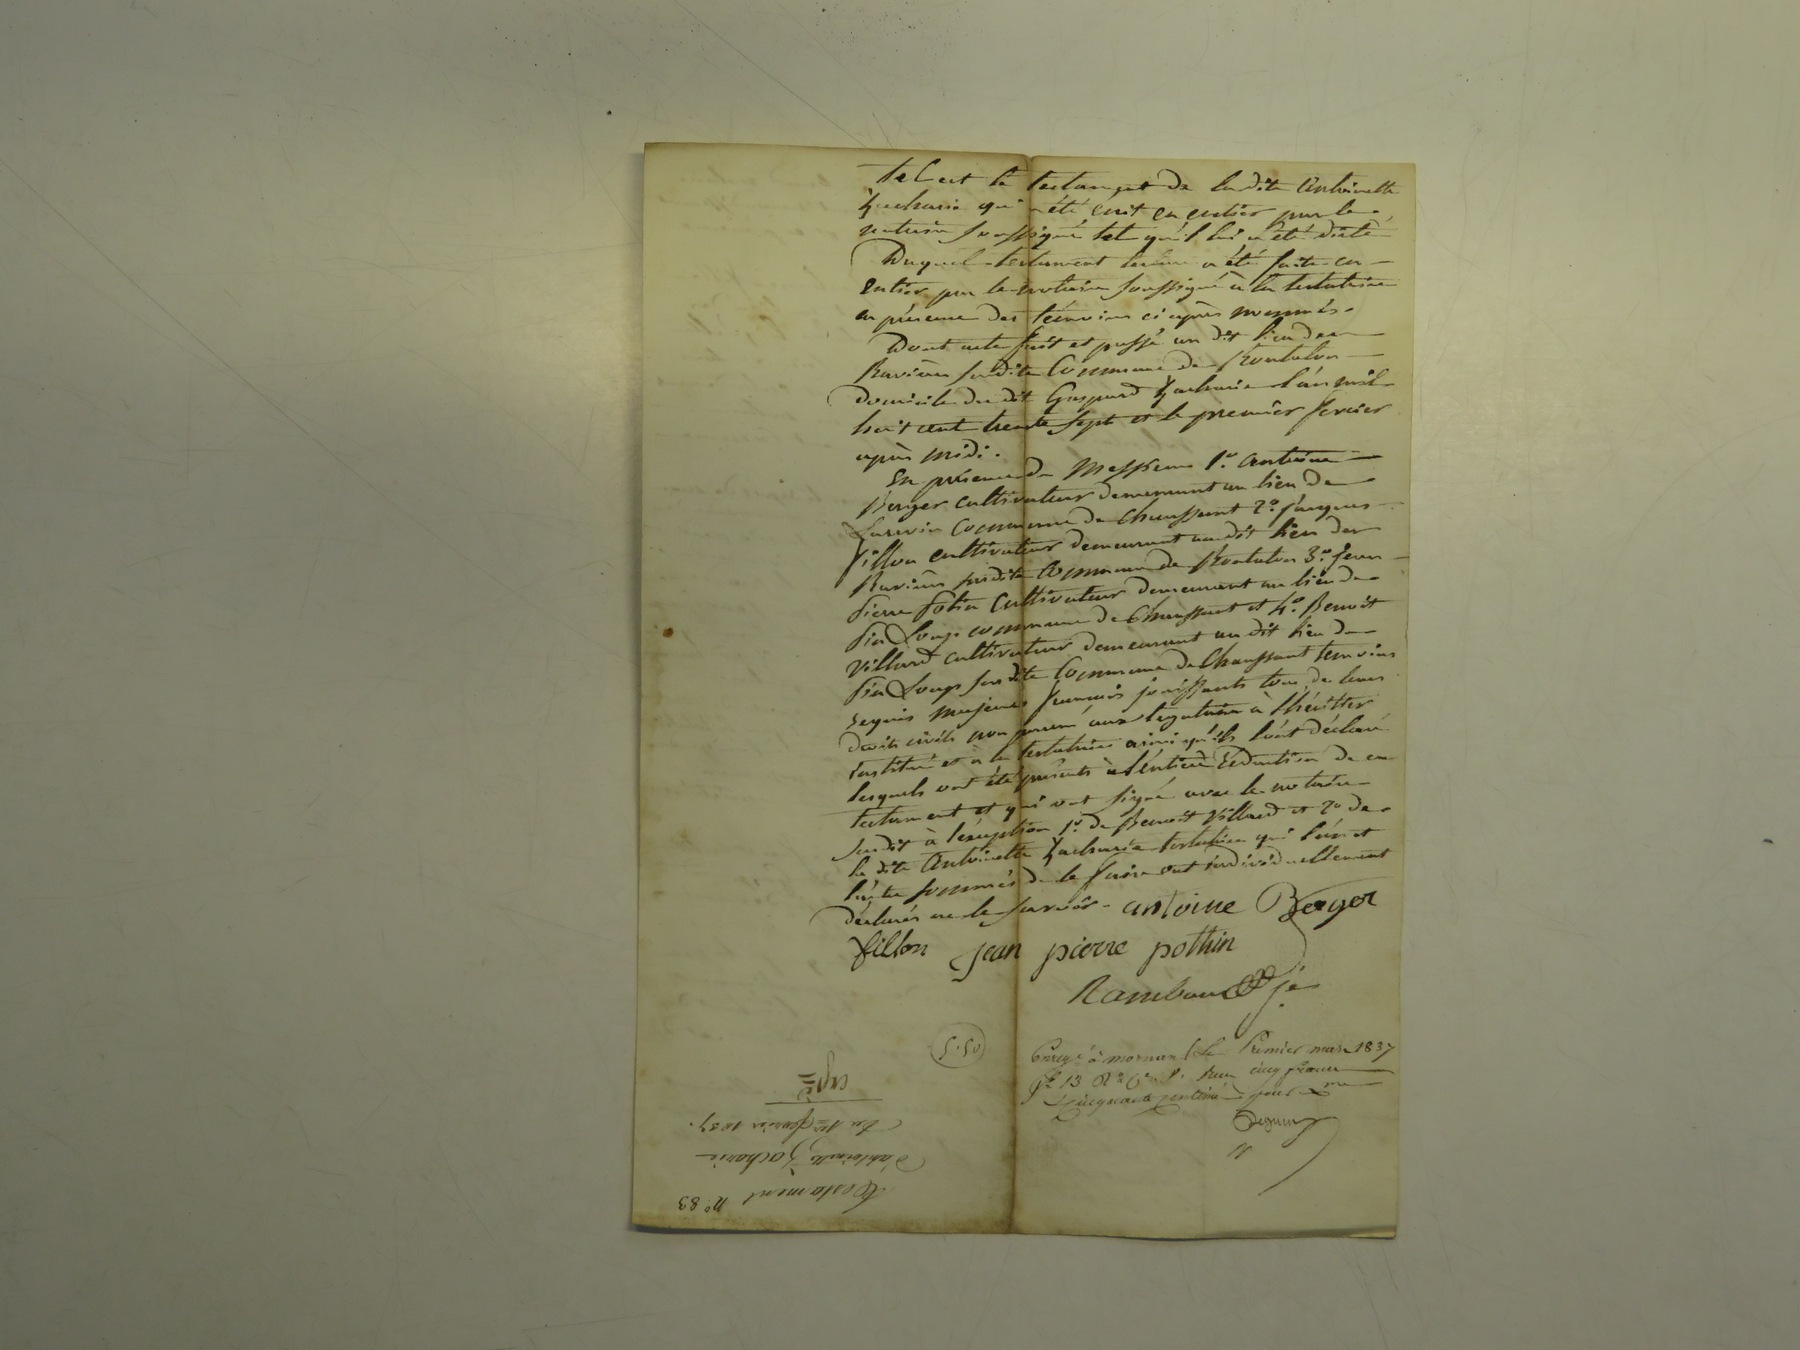 tel est le testament de la dite Antoinette
Zacharie qui a été écrit en entier par le
notaire soussigné tel qu'il lui a été dicté
Duquel testament lecture a été faite en
entier par le notaire soussigné à la testatrice
en présence des témoins ci après nommés.
Dont acte fait et passé au dit lieu des
Ravières susdite Commune de Rontalon
domicile du dit Gaspard Zacharie l'an mil
huit cent trente sept et le premier fevrier
après midi.
En présence de Messieurs 1.º Antoine
Berger cultivateur demeurant au lieu de
Commune de Chaussant 2.º Jacques
fillon cultivateur demeurant au dit lieu des
Ravières susdite Commune de Rontalon 3.º Jean
Pierre Potin Cultivateur demeurant au lieu de
Pie Loup commune de Chaussant et 4.º Benoit
Villard cultivateur demeurant au dit lieu de
Pie Loup susdite Commune de Chaussant temoins
requis majeurs francais jouissants tous de leurs
droits civils non parens aux légataires à l'héritier
institué et à la testatrice ainsi qu'ils l'ont déclaré
lesquels ont été présents à l'entière rédaction de ce
testament et qui ont signé avec le notaire
susdit à l'exception 1.º de Benoit Villard et 2.º de
la dite Antoinette Zacharie testatrice qui l'un et
l'autre sommés de le faire ont individuellement
déclarés ne le savoir. antoine Berger
fillon jean pierre pothin
Rambaud je
5.50
Enregé à mornant le Premier mars 1837
fº 13 Rº Cº 1. Recu cinq francs
Cinquante Centimes pour Dme
expé
du 1er février 1837.
d'antoinette Zacharie
Testament nº 83